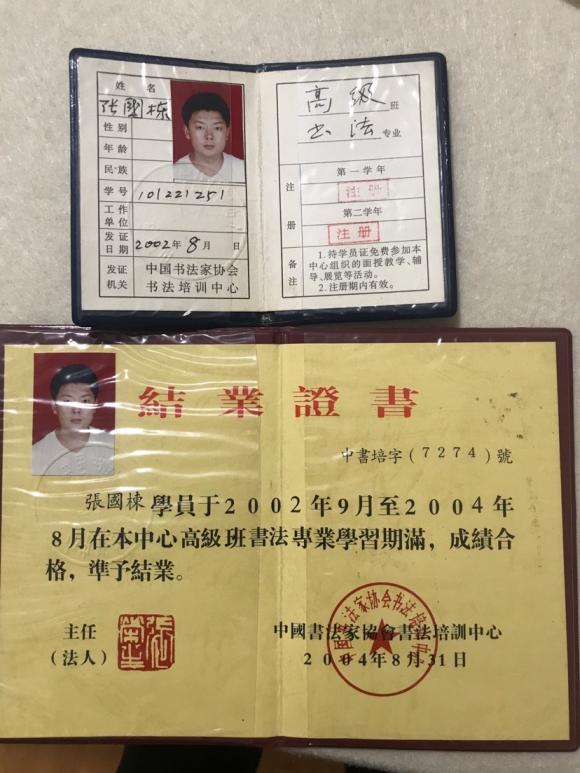 姓名
张國栋
性别
年龄
民族
学号 101221251
工作单位
发证日期 2002年8月 日
发证机关 中国书法家协会
书法培训中心
高级班
书法专业
注册
第一学年
注册
第二学年
注册
备注
1.持学员证免费参加本
中心组织的面授教学、辅
导、展览等活动。
2.注册期内有效。
結業證書
中書培字(7274)號
張國棟學員于2002年9月至2004年
8月在本中心高級班書法專業學習期滿，成績合
格，準予結業。
主任
(法人)
中國書法家協會書法培訓中心
2004年8月31日
中国书法家协会书法培训中心